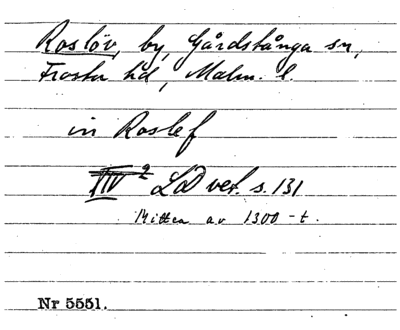 Roslöv, by, Gårdstånga sn,
Frosta hd, Malm. l.
in Roslef
IV² LD vet. s. 131
Mitten av 1300-t.
Nr 5551.